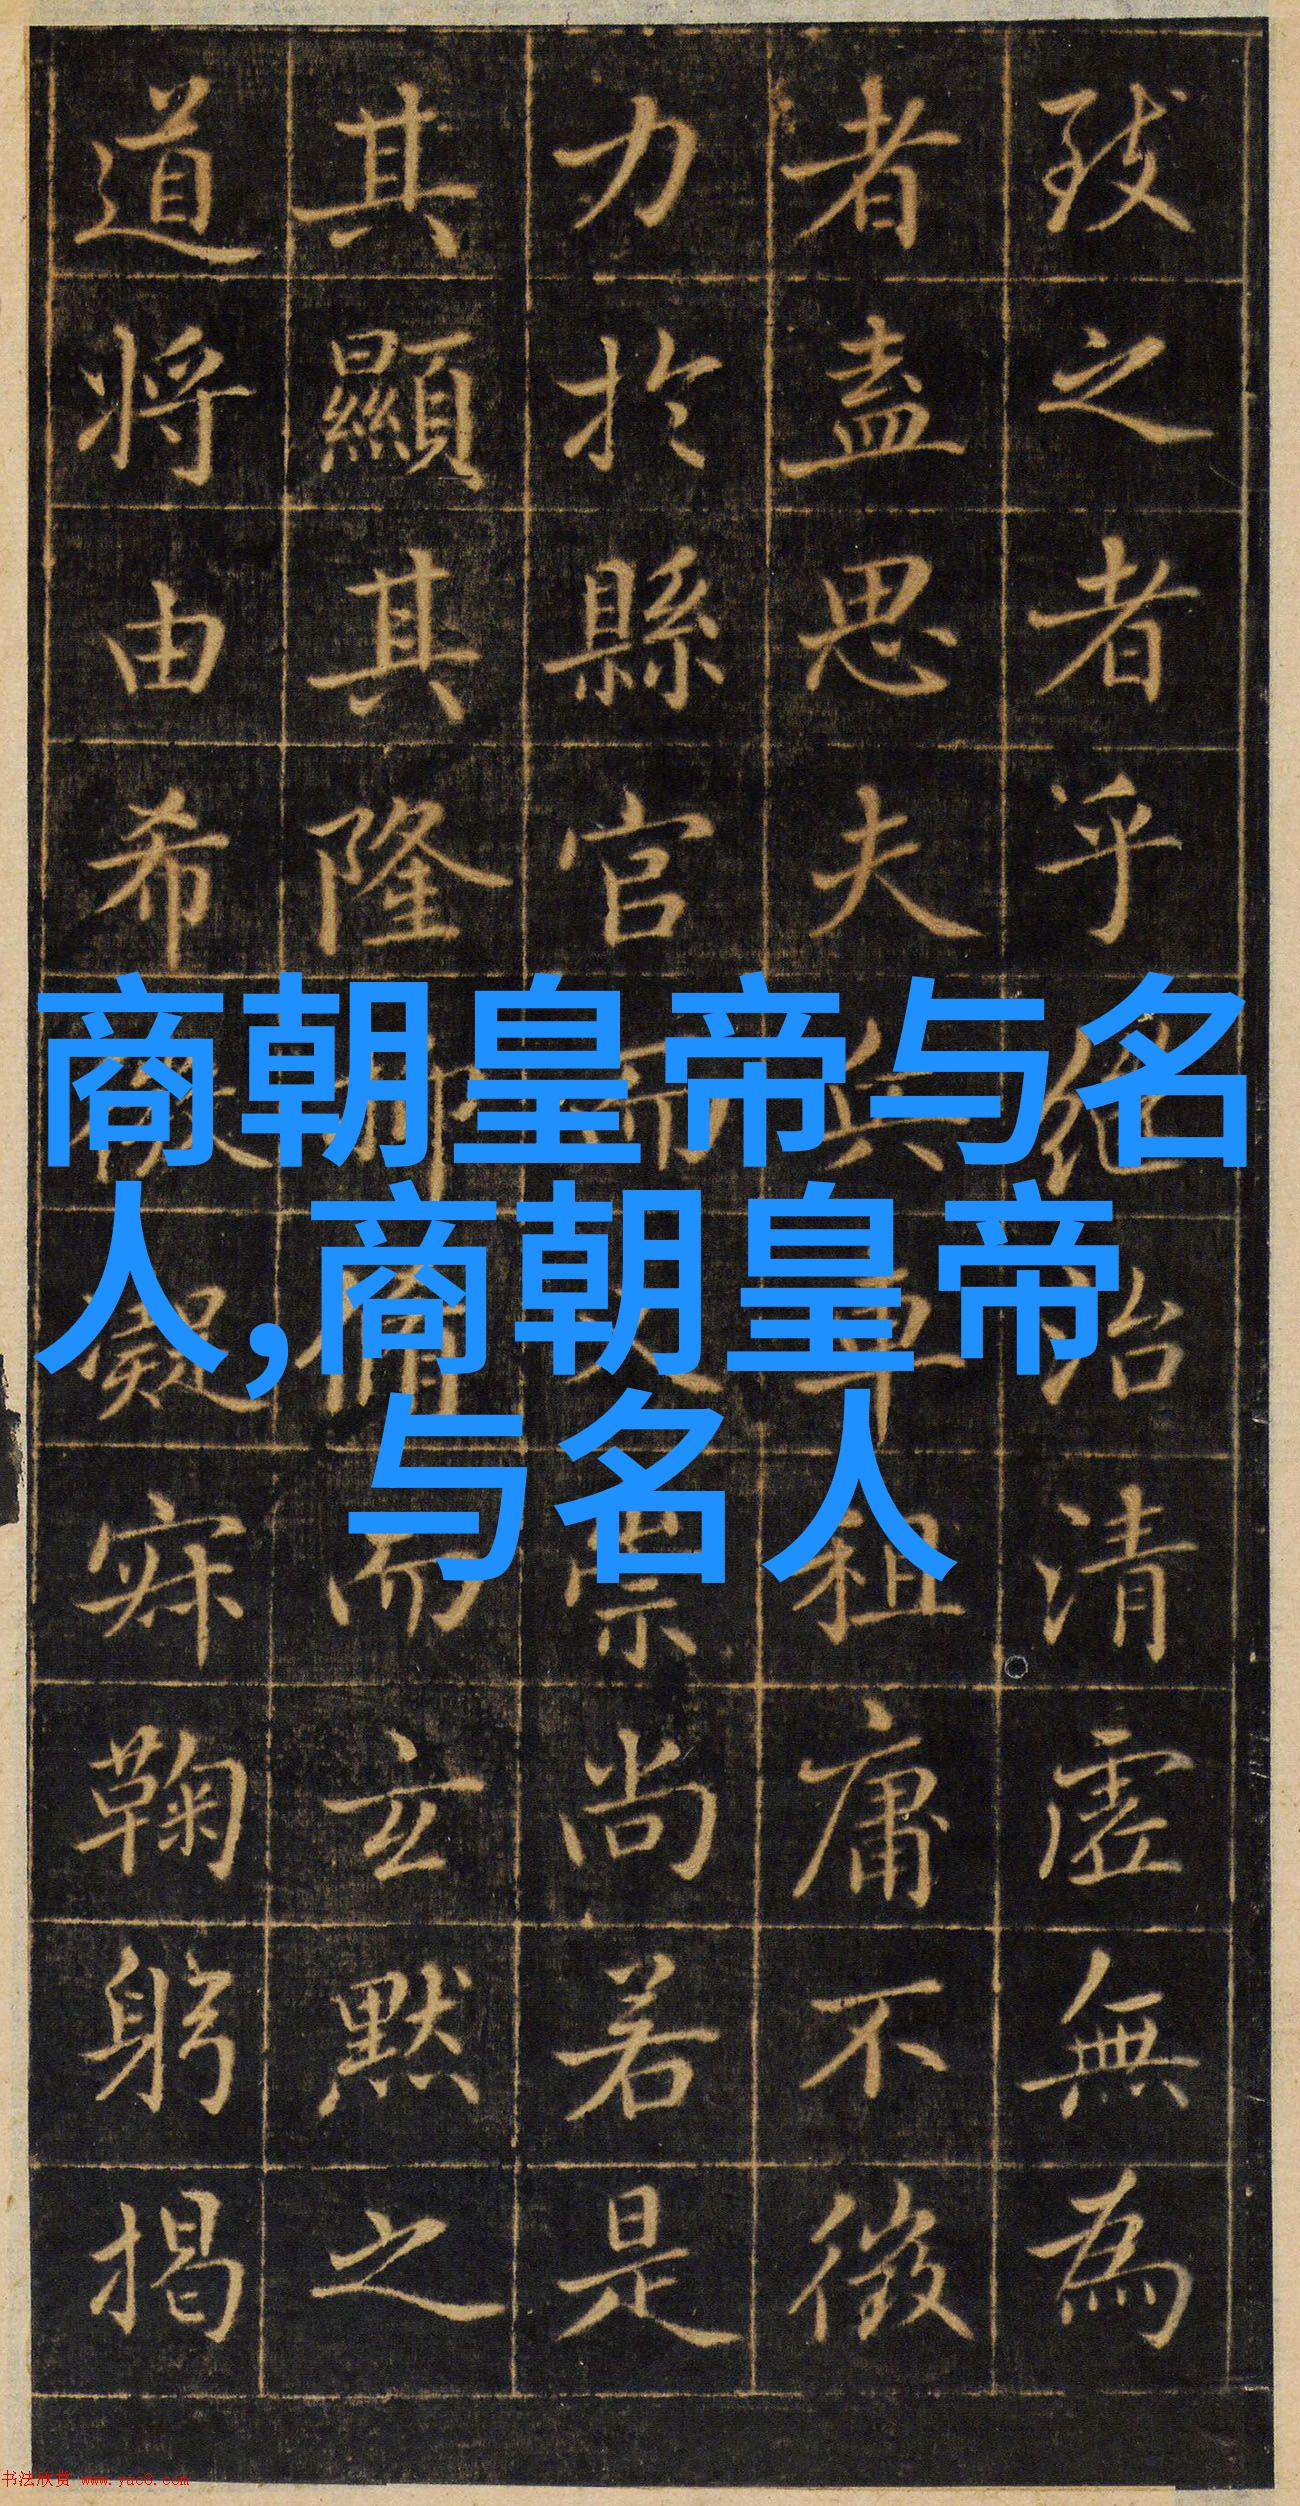 致之者乎繼治清虛無為
者盡思夫兵車租庸不徵
力於縣官而崇尚若是
其顯其隆而玄默之
道將由希寂鞠躬揭
商朝皇帝与名
人,商朝皇帝
与名人
书法欣赏 www.yac8.com